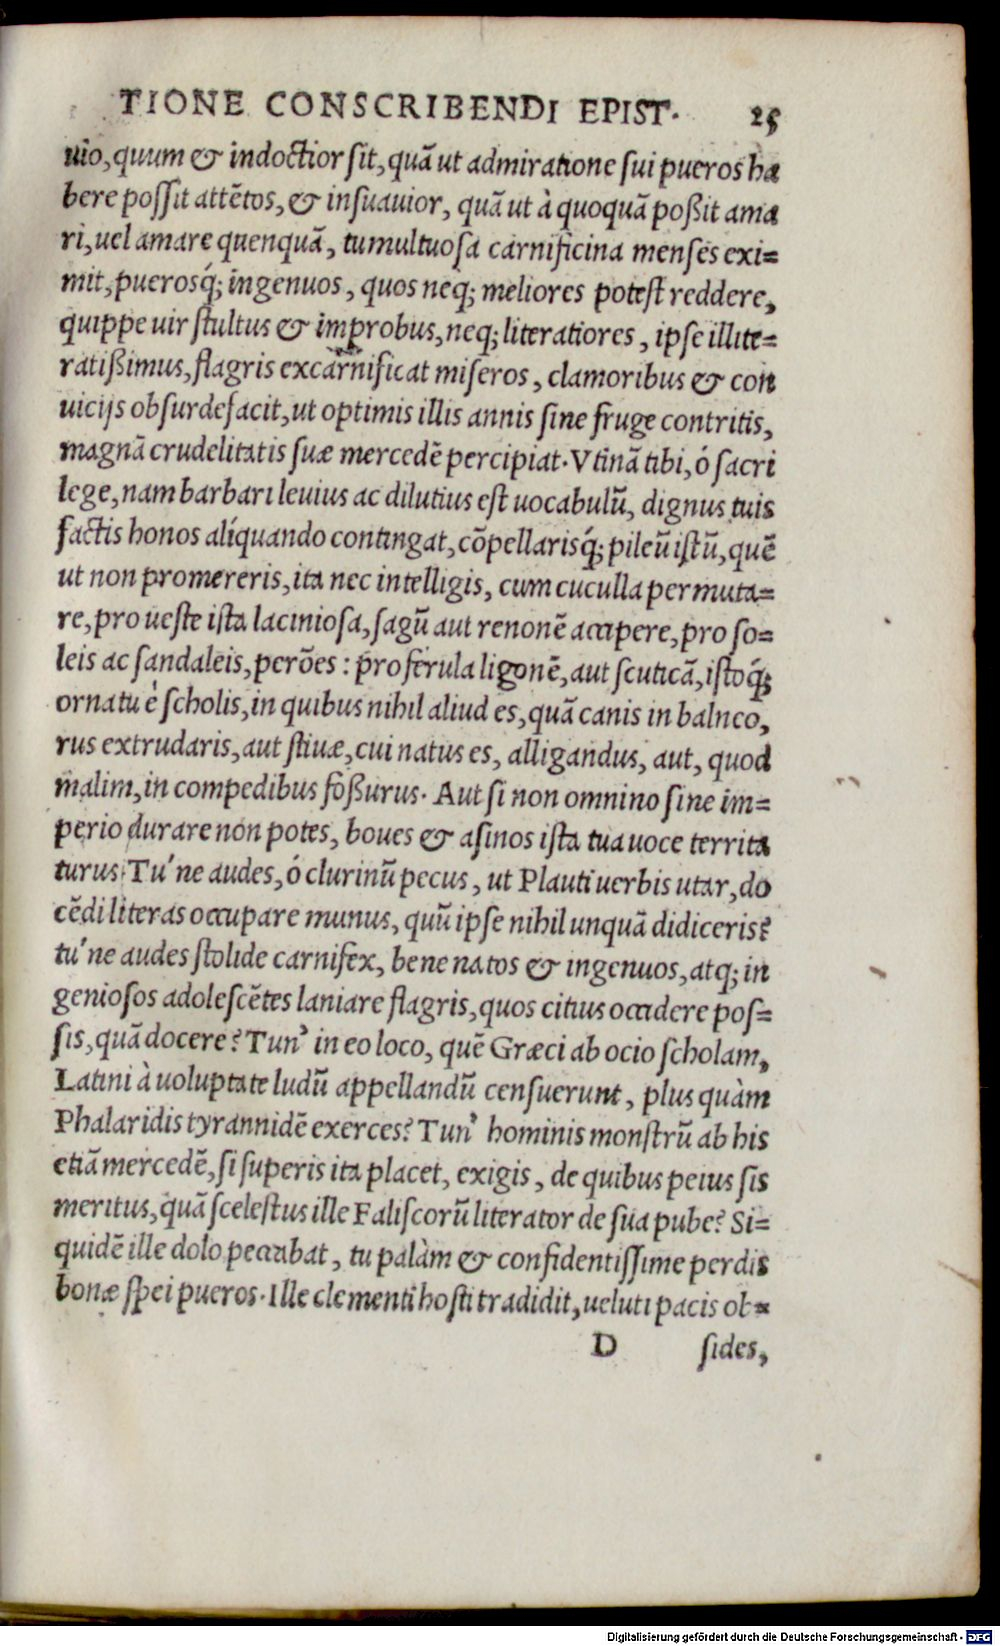 TIONE CONSCRIBENDI EPIST. 25
uio, quum & indoctior sit, quā ut admiratione sui pueros ha
bere possit attētos, & insuauior, quā ut à quoquā poßit ama
ri, uel amare quenquā, tumultuosa carnificina menses exi=
mit, puerosq́; ingenuos, quos neq; meliores potest reddere,
quippe uir stultus & improbus, neq; literatiores, ipse illite=
ratißimus, flagris excarnificat miseros, clamoribus & con
uicijs obsurdefacit, ut optimis illis annis sine fruge contritis,
magnā crudelitatis suæ mercedē percipiat. Vtinā tibi, ó sacri
lege, nam barbari leuius ac dilutius est uocabulū, dignus tuis
factis honos alíquando contingat, cōpellarisq́; pileū istū, quē
ut non promereris, ita nec intelligis, cum cuculla permuta=
re, pro ueste ista laciniosa, sagū aut renonē accipere, pro so=
leis ac sandaleis, perōes: pro ferula ligonē, aut scuticā, istoq́;
ornatu è scholis, in quibus nihil aliud es, quā canis in balneo,
rus extrudaris, aut stiuæ, cui natus es, alligandus, aut, quod
malim, in compedibus foßurus. Aut si non omnino sine im=
perio durare non potes, boues & asinos ista tua uoce territa
turus. Tu' ne audes, ó clurinū pecus, ut Plauti uerbis utar, do
cēdi literas occupare munus, quū ipse nihil unquā didiceris?
tu' ne audes stolide carnifex, bene natos & ingenuos, atq; in
geniosos adolescētes laniare flagris, quos citius occidere pos=
sis, quā docere? Tun' in eo loco, quē Græci ab ocio scholam,
Latini à uoluptate ludū appellandū censuerunt, plus quàm
Phalaridis tyrannidē exerces? Tun' hominis monstrū ab his
etiā mercedē, si superis ita placet, exigis, de quibus peius sis
meritus, quā scelestus ille Faliscorū literator de sua pube? Si=
quidē ille dolo peccabat, tu palàm & confidentissime perdis
bonæ spei pueros. Ille clementi hosti tradidit, ueluti pacis ob=
D sides,
Digitalisierung gefördert durch die Deutsche Forschungsgemeinschaft - DFG